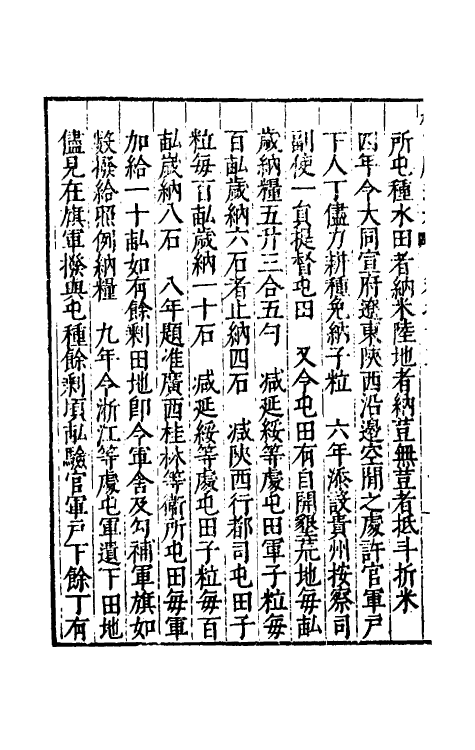 所屯種水田者納米陸地者納荳無荳者抵斗折米
四年令大同宣府遼東陝西沿邊空閒之處許官軍戶
下人丁儘力耕種免納子粒　六年添設貴州按察司
副使一員提督屯田　又令屯田有自開墾荒地每畝
歲納糧五升三合五勺　減延綏等處屯田軍子粒每
百畝歲納六石者止納四石　減陝西行都司屯田子
粒每百畝歲納一十石　減延綏等處屯田子粒每百
畝歲納八石　八年題准廣西桂林等衛所屯田每軍
加給一十畝如有餘剩田地卽令軍舍及勾補軍旗如
數撥給照例納糧　九年令浙江等處屯軍遺下田地
儘見在旗軍撥與屯種餘剩頃畝驗官軍戶下餘丁有